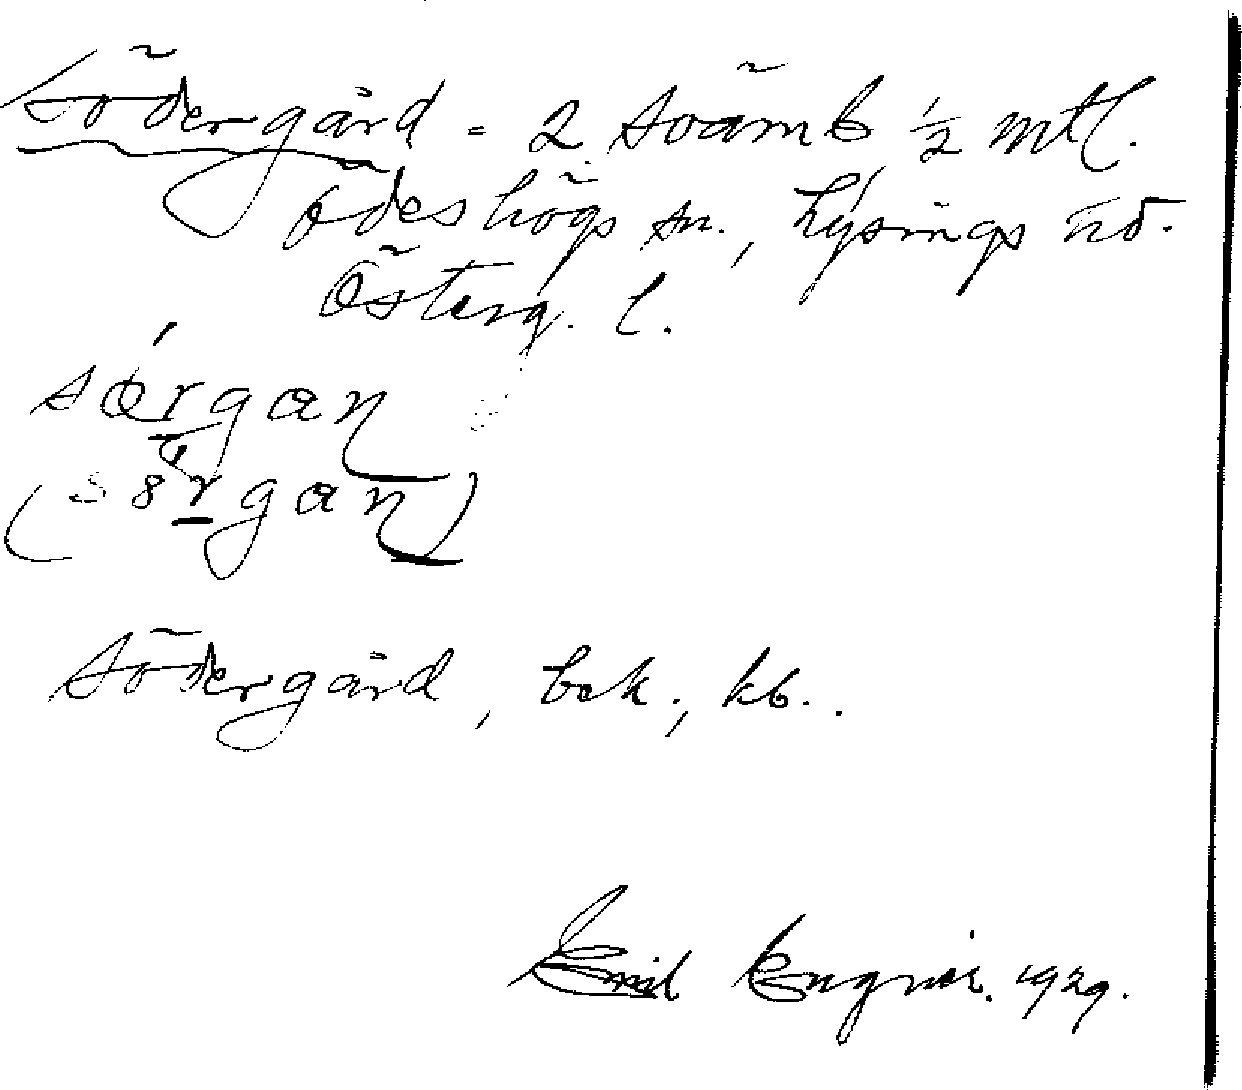 Södergård = 2 Svämb ½ mtl.
Ödeshögs sn., Lysings hd.
Österg. l.
sørgan
(s8rgan)
Södergård, bek., kb..
Emil Engnér. 1929.